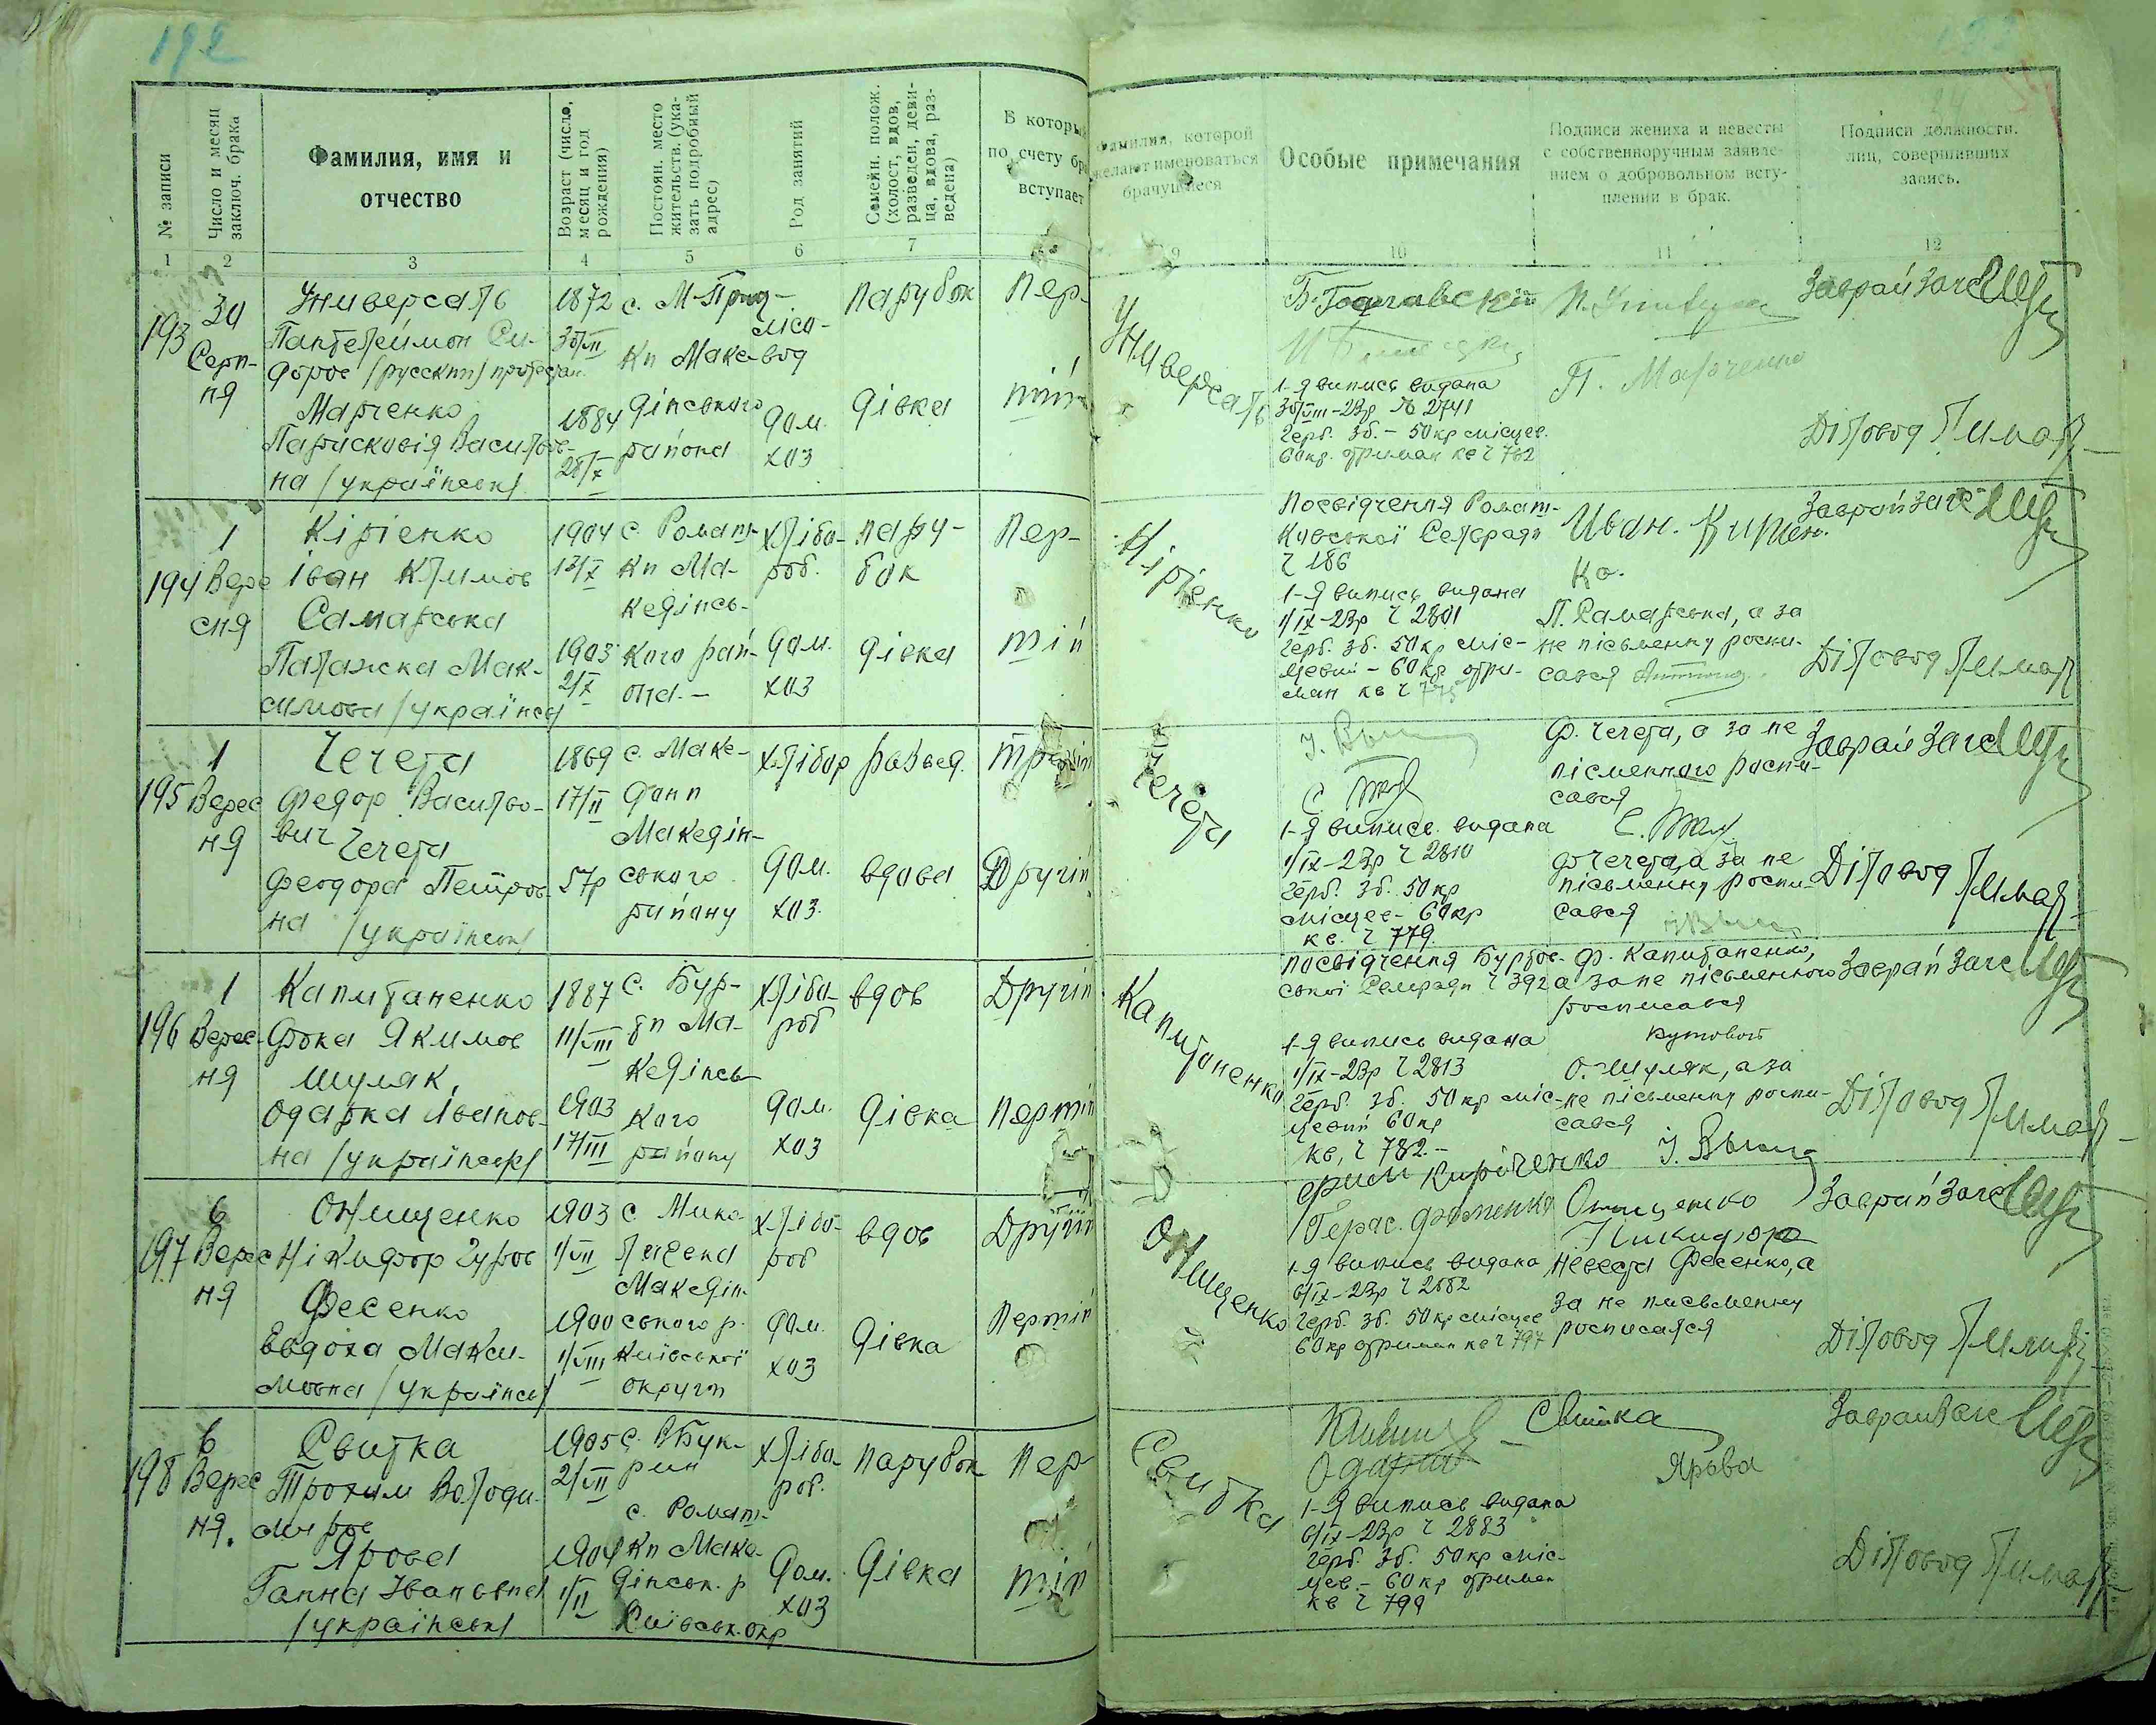 192
№ записи
Число и месяц
заключ. брака
Фамилия, имя и
отчество
Возраст (число,
месяц и год
рождения)
Постоян. место
жительств. (ука-
зать подробный
адрес)
Род занятий
Семейн. полож.
(холост, вдов,
разведен, деви-
ца, вдова, раз-
ведена)
В которы
по счету бра
вступает
Фамилия, которой
желают именоваться
брачущиеся
Особые примечания
Подписи жениха и невесты
с собственноручным заявле-
нием о добровольном всту-
плении в брак.
Подписи должностн.
лиц, совершивших
запись.
1
2
3
4
5
6
7
9
10
11
12
193
30
Серп-
ня
Универсаль
Пантелеймон Си-
доров /русский/
Марченко
Парисковія Василів-
на /українськ/
1872
30/VII
1884
28/X
с. М-Приц-
ки Маке-
дінського
района
лісо-
вод
дом.
хоз
парубок
дівка
Пер-
ший
Универсаль
1-я випись видана
30/VIII-28р № 2741
герб. зб. - 50 кр місцев.
60 кр. отриман кв ч 762
П. Марченко
Заврайзагс
Діловод
194
1
Вере
сня
Кірієнко
Іван Климов
Самарська
Палажка Мак-
симова /українськ/
1904
13/X
1903
2/X
с. Ромаш-
ки Ма-
кедінсь-
кого рай-
она. -
хлібо-
роб.
дом.
хоз
пару-
бок
дівка
Пер-
ший
Кірієнко
Посвідчення Ромаш-
ківської Сельради
ч 186
1-я випись видана
1/IX-28р ч 2801
герб. зб. 50 кр міс-
цевий - 60 кр отри-
ман кв ч 775
Иван. Кириен.
ко.
П. Самарська, а за
не пісьменну роспи-
сався
Заврайзагс
Діловод
195
1
Верес
ня
Чечета
Федор Васильо-
вич
Чечета
Феодора Петров-
на /українськ/
1869
17/II
57р
с. Маке-
дони
Македін-
ського
району
хлібор
дом.
хоз.
развед.
вдова
третій
Другий
Чечета
1-я випись видана
1/IX-28р ч 2810
герб. зб. 50 кр
місцев - 60 кр
кв. ч 779.
Ф. Чечета, а за не
пісменного роспи-
сався
Ф Чечета, а за не
пісьменну роспи-
сався
Заврай загс
Діловод
196
1
Верес-
ня
Капитаненко
Фока Якимов
Шуляк,
Одарка Іванов-
на /українськ/
1887
11/VIII
1903
17/III
с. Бур-
ти Ма-
кедінсь-
кого
району
хлібо-
роб
дом.
хоз
вдов
дівка
Другий
Перший
Капитаненко
посвідчення Буртов-
ської Сельради ч 392
1-я випись видана
1/IX-28р ч 2813
герб. зб. 50 кр міс-
цевий 60 кр
кв, ч 782. -
Ф. Капитаненко,
а за не пісьменного
росписався
Кутовой
О. Шуляк, а за
не пісьменну роспи-
сався
Заврай Загс
Діловод
197
6
Верес
ня
Онищенко
Нікифор Гуров
Фесенко
Евдоха Макси-
мовна /українськ/
1903
1/VII
1900
1/VIII
с Мико-
Македін-
ського р.
Київської
округи
хлібо-
роб
дом.
хоз
вдов
дівка
Другий
Перший
Онищенко
Кириченко
Герас. Фоменко
1-я випись видана
6/IX-28р ч 2882
герб. зб. 50 кр місцев
60 кр отриман кв ч 797
Онищенко
Никифор
Невеста Фесенко, а
за не письменну
росписался
Заврай загс
Діловод
198
6
Верес
ня.
Свитка
Трохим Володи-
миров
Ярова
Ганна Івановна
/українськ/
1905
2/VII
1904
1/II
с. В Бук-
рин
с. Ромаш-
ки Маке-
дінськ. р
Київськ. окр
хлібо-
роб.
дом.
хоз
парубок
дівка
Пер
ший
Свитка
1-я випись видана
6/IX-28р ч 2883
герб. зб. 50 кр міс-
цев. - 60 кр отриман
кв ч 799
Свитка
Ярова
Заврайзагс
Діловод